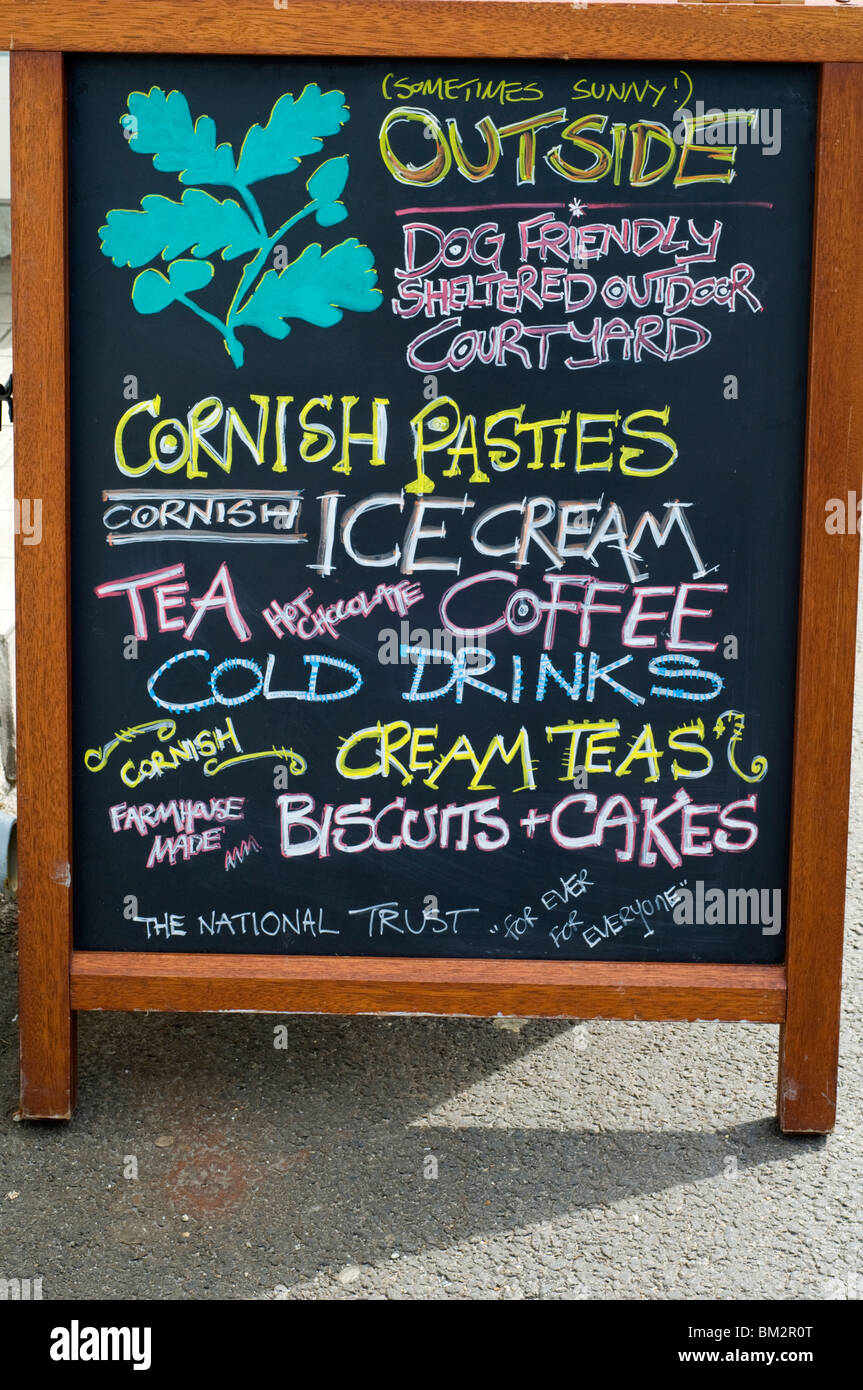 (SOMETIMES SUNNY!)
OUTSIDE
DOG FRIENDLY
SHELTERED OUTDOOR
COURTYARD
CORNISH PASTIES
CORNISH ICE CREAM
TEA HOT CHOCOLATE COFFEE
COLD DRINKS
CORNISH CREAM TEAS
FARMHOUSE MADE MM. BISCUITS + CAKES
THE NATIONAL TRUST "FOR EVER FOR EVERYONE"
a alamy stock photo
alamy
Image ID: BM2R0T
www.alamy.com